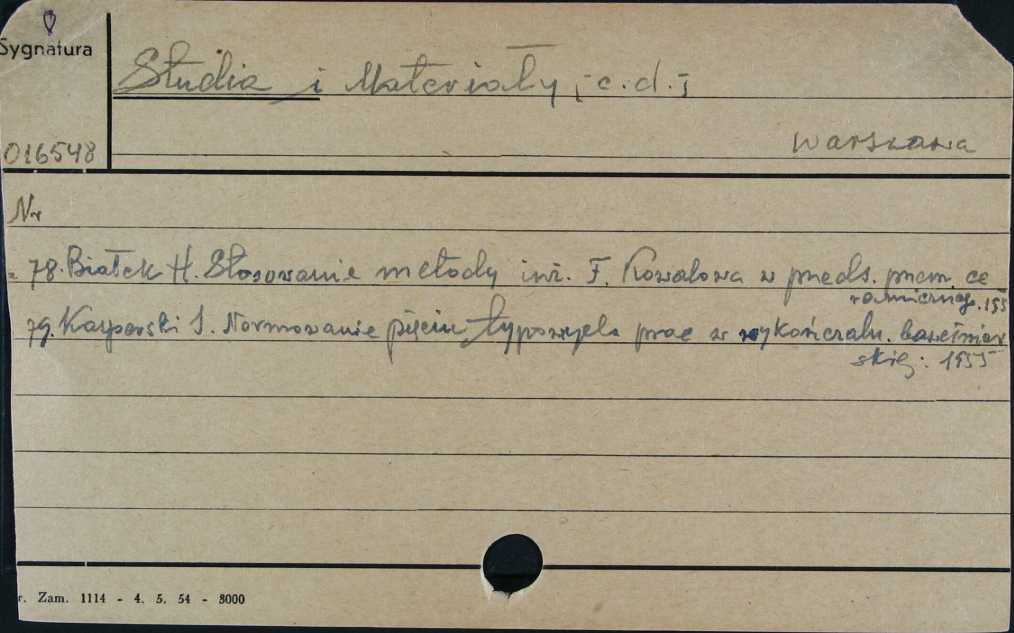 Sygnatura
Studia i Materiały ; c.d. ;
016548
Warszawa
Nr
78. Białek H. Stosowanie metody inż. F. Kowalowa w przeds. przem. ce
ramicznego. 195
79. Kasperski S. Normowanie pięciu typowych prac w wykończaln. bawełniar
skiej: 1955
r. Zam. 1114 - 4. 5. 54 - 8000